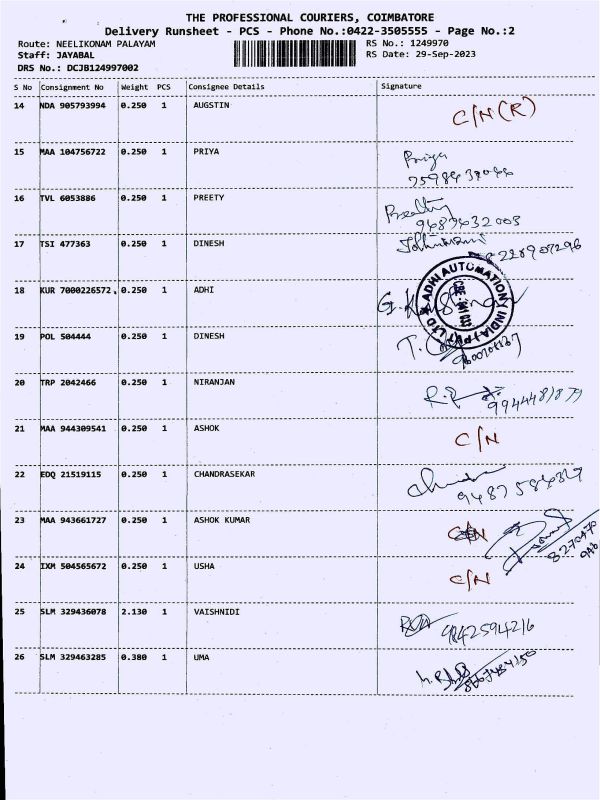 THE PROFESSIONAL COURIERS, COIMBATORE
Delivery Runsheet - PCS - Phone No.:0422-3505555 - Page No.:2
Route: NEELIKONAM PALAYAM RS No.: 1249970
Staff: JAYABAL RS Date: 29-Sep-2023
DRS No.: DCJB124997002
S No Consignment No Weight PCS Consignee Details Signature
14 NDA 905793994 0.250 1 AUGSTIN C/N (R)
15 MAA 104756722 0.250 1 PRIYA Priya
16 TVL 6053886 0.250 1 PREETY Preethy
9487432003
17 TSI 477363 0.250 1 DINESH
18 KUR 7000226572 0.250 1 ADHI ADHI AUTOMATION INDIA PVT LTD
19 POL 504444 0.250 1 DINESH
20 TRP 2042466 0.250 1 NIRANJAN
21 MAA 944309541 0.250 1 ASHOK C/N
22 EDQ 21519115 0.250 1 CHANDRASEKAR
23 MAA 943661727 0.250 1 ASHOK KUMAR
24 IXM 504565672 0.250 1 USHA C/N
25 SLM 329436078 2.130 1 VAISHNIDI 9842594216
26 SLM 329463285 0.380 1 UMA